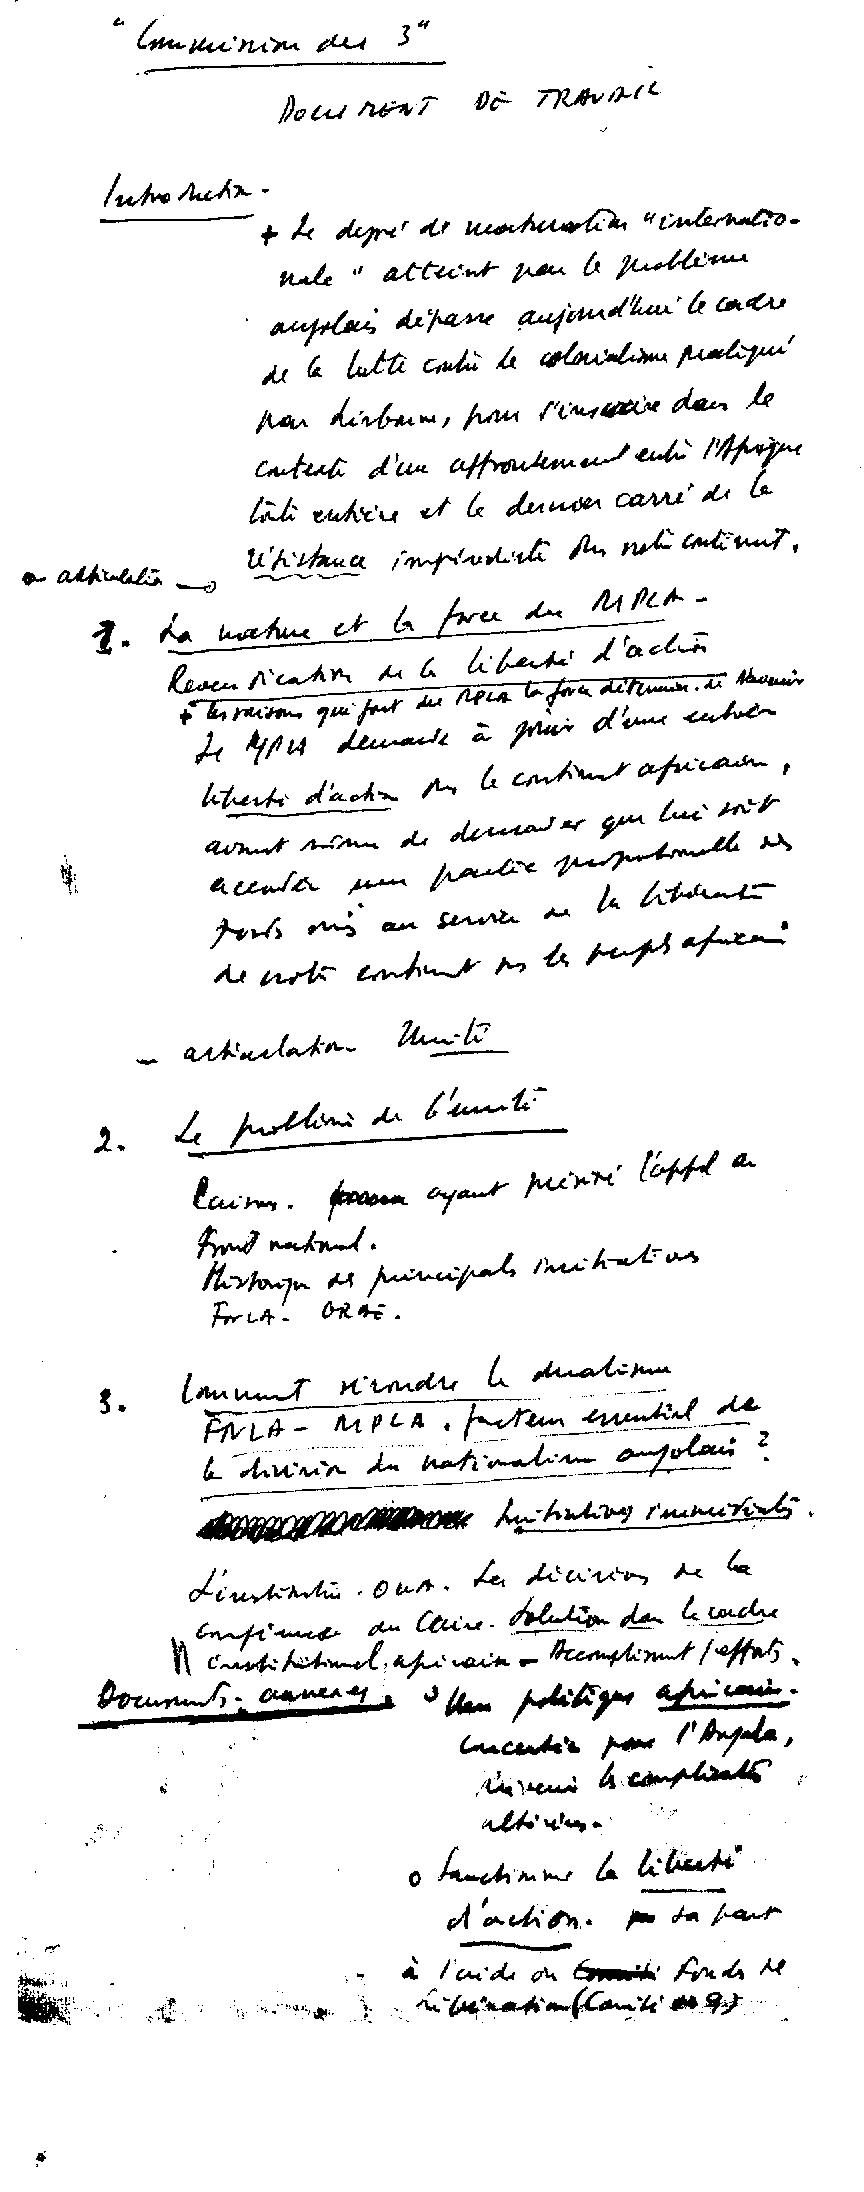 "Commission des 3"
DOCUMENT DE TRAVAIL
Introduction -
+ Le degré de maturation "internatio-
nale" atteint par le problème
angolais dépasse aujourd'hui le cadre
de la lutte contre le colonialisme pratiqué
par Lisbonne, pour s'inscrire dans le
contexte d'un affrontement entre l'Afrique
toute entière et le dernier carré de la
résistance impérialiste ds notre continent.
articulation
1. La nature et la force du MPLA -
Revendication de la liberté d'action
+ Les raisons qui font du MPLA la force détermin. de
Le MPLA demande à jouir d'une entière
liberté d'action ds le continent africain,
avant même de demander que lui soit
accordée une partie proportionnelle des
fonds mis au service de la libération
de notre continent ps les peuples africains
- articulation Unité
2. Le problème de l'unité
Raisons. ayant motivé l'appel au
Front national.
Historique des principales initiatives
FNLA -
3. Comment résoudre le dualisme
FNLA - MPLA, facteur essentiel de
la division du nationalisme angolais ?
Initiatives immédiates.
L'institution. OUA. Les décisions de la
conférence du Caire. Solution dans le cadre
institutionnel africain - Accomplissent /efforts.
Documents - annexes.
o Une politique africaine
concertée pour l'Angola,
prévenir les complicités
o Sanctionner la liberté
d'action. sa part
à l'aide du Fonds de
Libération (Comité des 9)